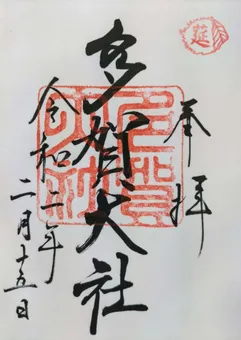 奉拝
多賀大社
令和二年
二月十五日
延